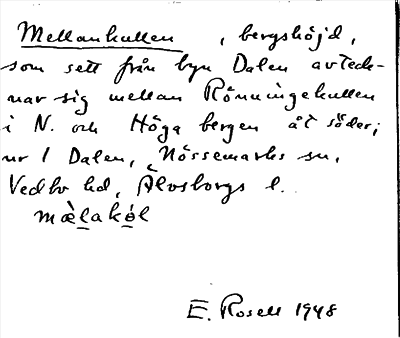 Mellankullen , bergshöjd,
som sett från byn Dalen avteck-
nar sig mellan Rönningekullen
i N. och Höga bergen åt söder;
nr 1 Dalen, Nössemarks sn,
Vedbo hd, Älvsborgs l.
mæ̀lakọ́l
E. Rosell 1948